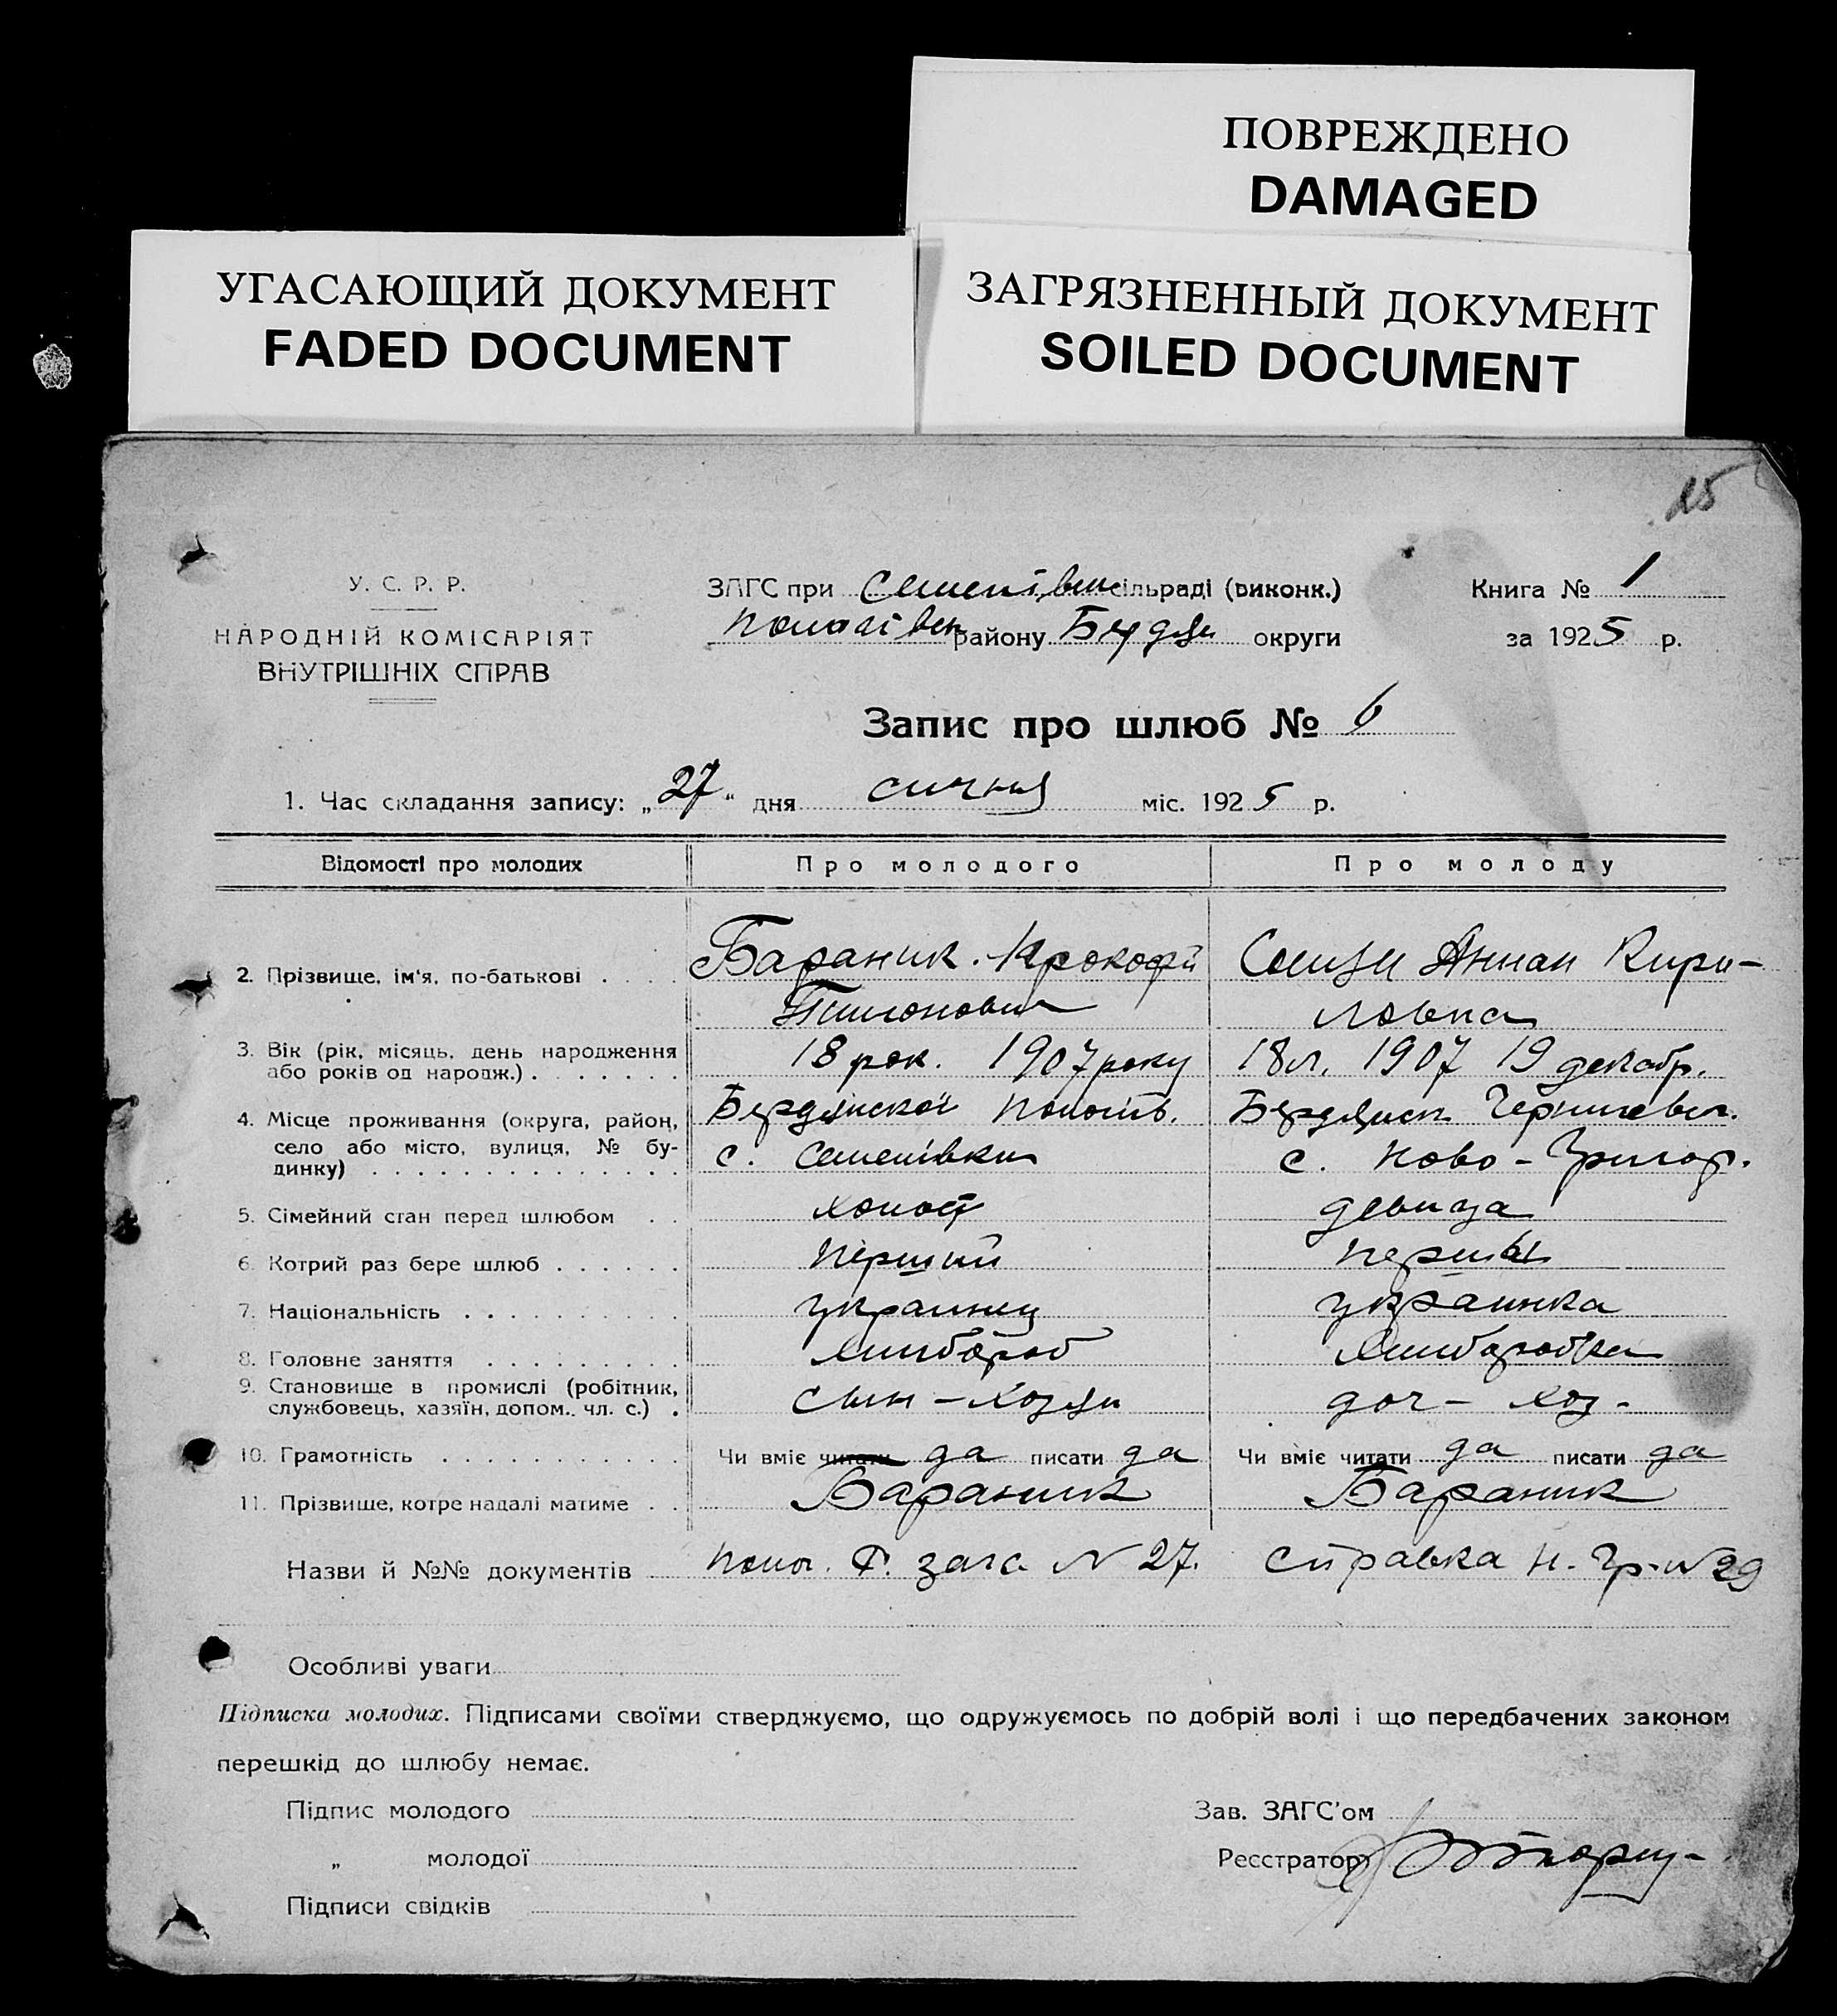 ПОВРЕЖДЕНО
DAMAGED
УГАСАЮЩИЙ ДОКУМЕНТ
FADED DOCUMENT
ЗАГРЯЗНЕННЫЙ ДОКУМЕНТ
SOILED DOCUMENT
У. С. Р. Р.
НАРОДНІЙ КОМІСАРІЯТ
ВНУТРІШНІХ СПРАВ
ЗАГС при Семенівск сільраді (виконк.)
району Бердян округи
Книга № 1
за 1925 р.
Запис про шлюб № 6
1. Час складання запису: „27" дня сичня міс. 1925 р.
Відомості про молодих Про молодого Про молоду
2. Прізвище, ім'я, по-батькові Бараник Прокофій Кири-
ловна
3. Вік (рік, місяць, день народження 18 рок. 1907 року 18 л. 1907 19 декабр.
або років од народж.)
4. Місце проживання (округа, район, Бердянскої Пологів. Бердянск Чернигевск.
село або місто, вулиця, № бу- с. Семенівки с. Ново-Григор.
динку)
5. Сімейний стан перед шлюбом холост девица
6. Котрий раз бере шлюб Перший первы
7. Національність украинец украинка
8. Головне заняття хлибороб хлиборобка
9. Становище в промислі (робітник, сын-хозяи доч- хоз-
службовець, хазяїн, допом. чл. с.)
10. Грамотність Чи вміє читати да писати да Чи вміє читати да писати да
11. Прізвище, котре надалі матиме Бараник Бараник
Назви й №№ документів Р. загса N 27. справка Н-Гр. N 29
Особливі уваги
Підписка молодих. Підписами своїми стверджуємо, що одружуємось по добрій волі і що передбачених законом
перешкід до шлюбу немає.
Підпис молодого
„ молодої
Підписи свідків
Зав. ЗАГС'ом
Реєстратор